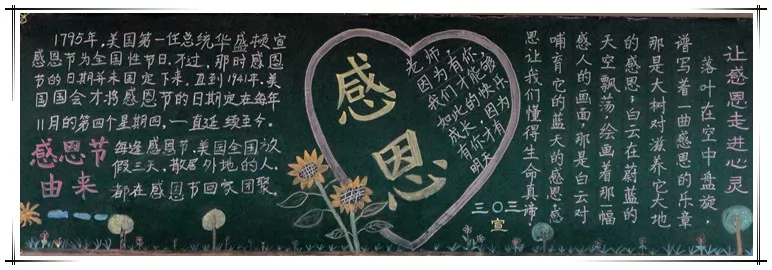 1795年,美国第一任总统华盛顿宣
感恩节为全国性节日.不过,那时感恩
节的日期并未国定下来,直到1941年,美
国国会才将感恩节的日期定在每年
11月的第四个星期四,一直延续至今.
感恩节
由来
每逢感恩节,美国全国放
假三天,散居外地的人,
都在感恩节回家团聚.
感恩
老师,
因为有你,
我们才能够
如此的快乐
成长,因为
有你才有
明天
三〇三
宣
让感恩走进心灵
落叶在空中盘旋,
谱写着一曲感恩的乐章
那是大树对滋养它大地
的感恩;白云在蔚蓝的
天空飘荡,绘画着那一幅
感人的画面那是白云对
哺育它的蓝天的感恩感
恩让我们懂得生命真谛.